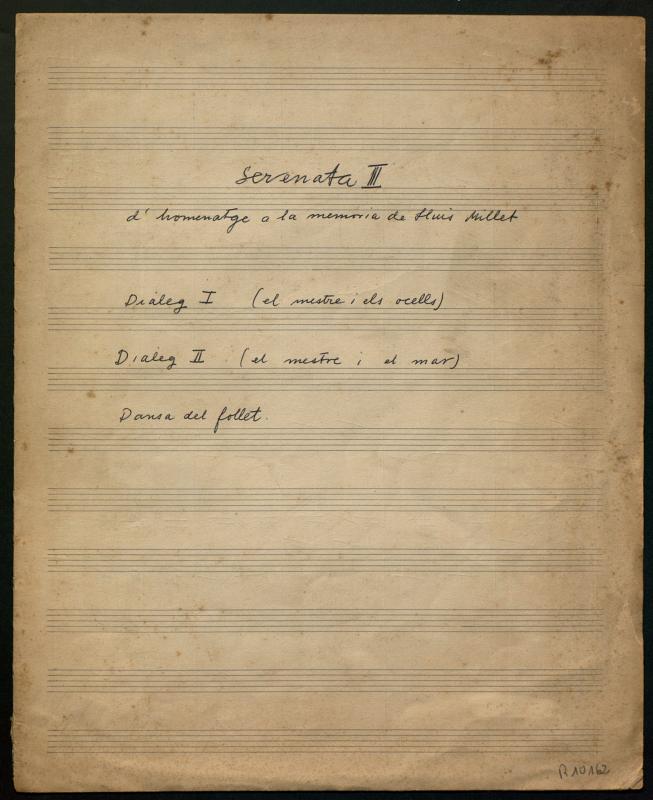 Serenata III
d' homenatge a la memoria de Lluis Millet
Dialeg I (el mestre i els ocells)
Dialeg II (el mestre i el mar)
Dansa del follet.
R 10162